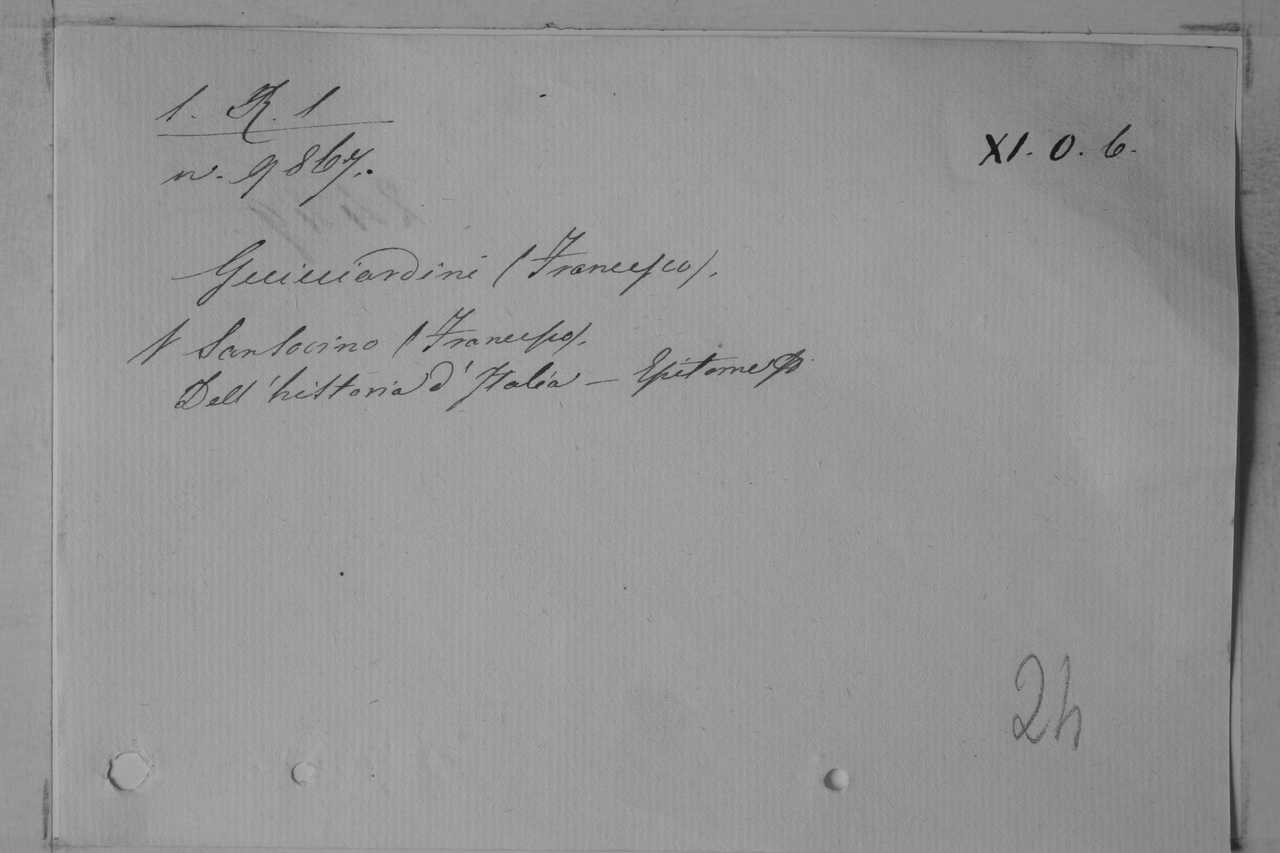 1. R. 1
n. 9867.
XI. O. 6.
Guicciardini (Francesco).
V Sansovino (Francesco).
Dell'historia d'Italia — Epitome
24